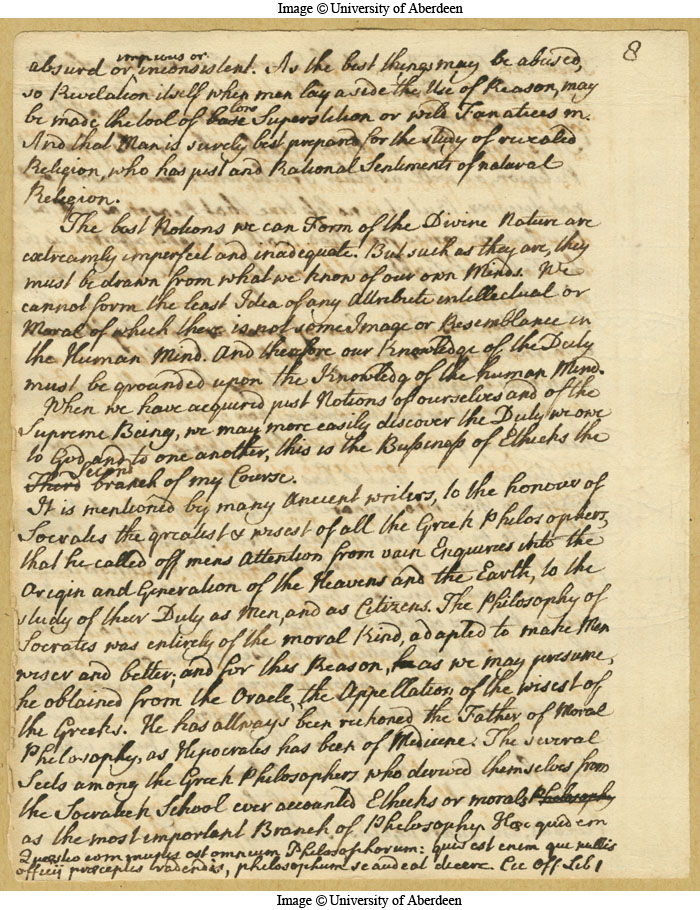 Image © University of Aberdeen
8
impious or
absurd or inconsistent. As the best things may be abused,
so Revelation itself when men lay aside the Use of Reason, may
be made the tool of base Superstition or wild Fanaticism.
And that Man is surely best prepared for the study of revealed
Religion, who has just and Rational Sentiments of natural
Religion.
The best Notions we can Form of the Divine Nature are
extreamly imperfect and inadequate. But such as they are, they
must be drawn from what we know of our own Minds. We
cannot form the least Idea of any Attribute intellectual or
Moral of which there is not some Image or Resemblance in
the Human Mind. And therefore our Knowledge of the Deity
must be grounded upon the Knowledg of the human Mind.
When we have acquired just Notions of ourselves and of the
Supreme Being, we may more easily discover the Duty we owe
to God and to one another, this is the Bussiness of Ethicks the
Second
Third branch of my Course.
It is mentioned by many Ancient writers, to the honour of
Socrates the greatest & wisest of all the Greek Philosophers,
that he called off mens Attention from vain Enquiries into the
Origin and Generation of the Heavens and the Earth, to the
study of their Duty as Men, and as Citizens. The Philosophy of
Socrates was entirely of the moral Kind, adapted to make Men
wiser and better; and for this Reason, as we may presume,
he obtained from the Oracle, the Appellation of the wisest of
the Greeks. He has allways been reckoned the Father of Moral
Philosophy, as Hipocrates has been of Medicine. The several
Sects among the Greek Philosophers who derived themselves from
the Socratick School ever accounted Ethicks or morals Philosophy
as the most important Branch of Philosophy. Hæc quidem
Quæstio communis est omnium Philosophorum: quis est enim qui nullis
officij præceptis tradendis, philosophum se audeat dicere Cic Off Lib 1
Image © University of Aberdeen